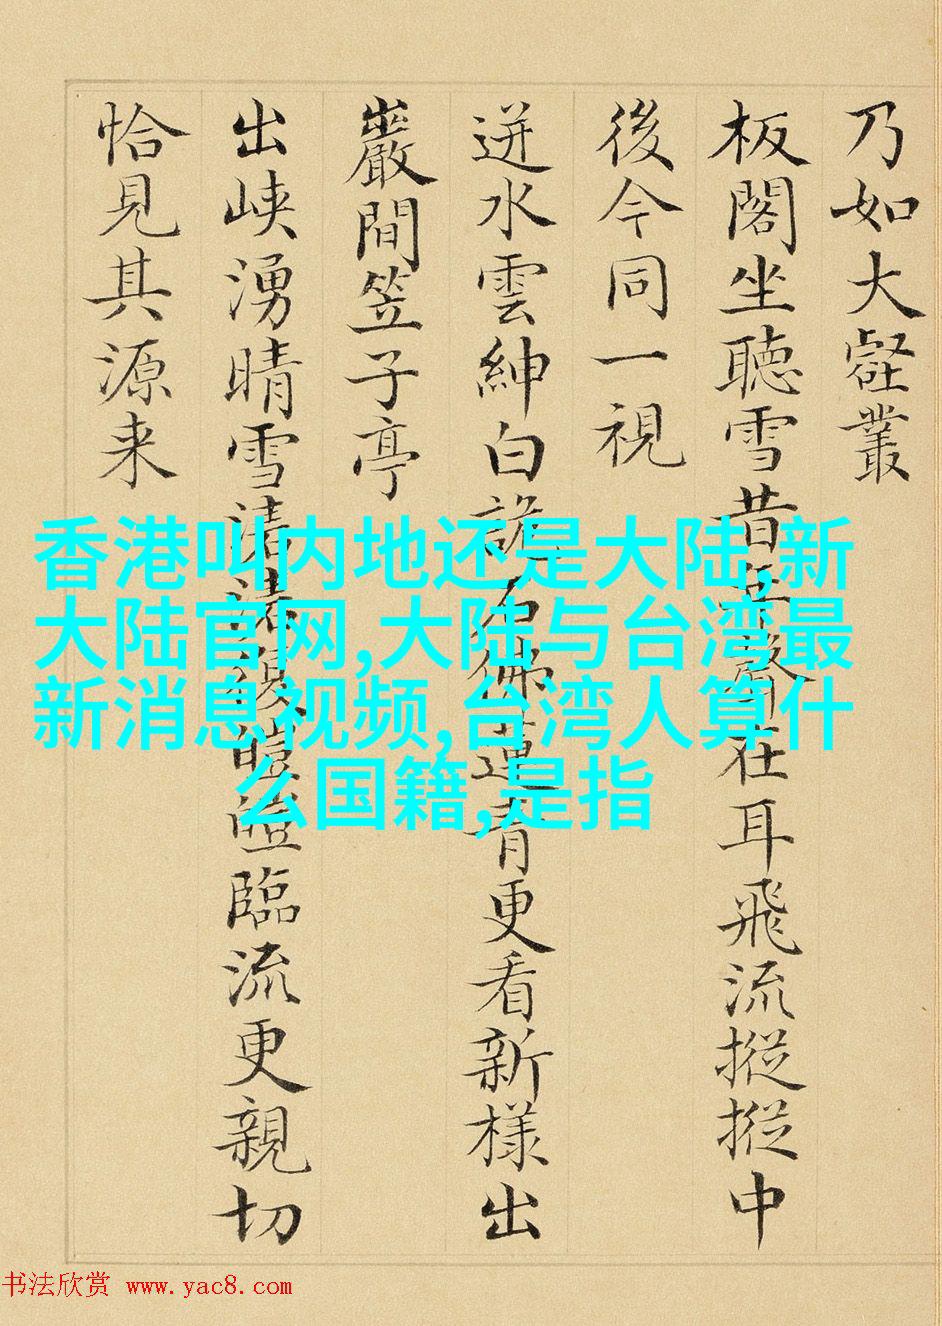 乃如大壑叢
板閣坐聽雪昔年聲在耳飛流摐摐中
後今同一視
迸水雲紳白詭石佛蓮青更看新樣出
巖間笠子亭
出峽湧晴雪清復皚皚臨流更親切
恰見其源来
香港叫内地还是大陆,新
大陆官网,大陆与台湾最
新消息视频,台湾人算什
么国籍,是指
书法欣赏 www.yac8.com